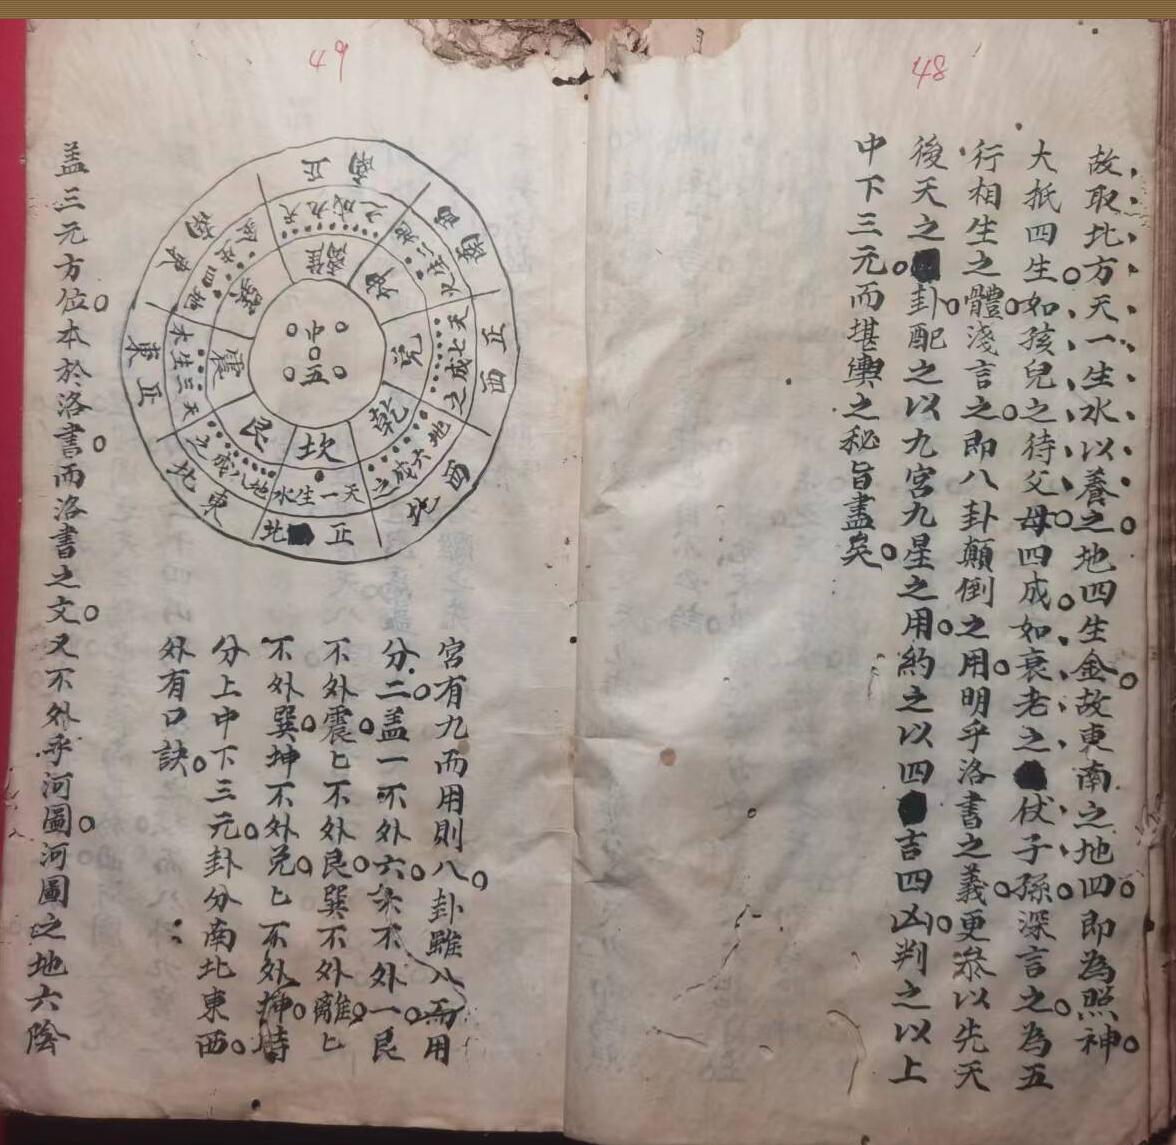 48
故取北方天一生水以養之地四生金故東南之地四即為照神
大抵四生如孩兒之待父母四成如衰老之仗子孫深言之為五
行相生之體淺言之即八卦顛倒之用明乎洛書之義更叅以先天
後天之卦配之以九宮九星之用約之以四吉四凶判之以上
中下三元而堪輿之秘旨盡矣
49
正南
西南
正西
西北
正北
東北
正東
東南
天九成之
地二生火
天七成之
地六成之
天一生水
地八成之
天三生木
地四生金
離
坤
兌
乾
坎
艮
震
巽
中五
宮有九而用則八卦雖八而用
分二盖一不外六六不外一艮
不外震匕不外艮巽不外離匕
不外巽坤不外兌匕不外坤特
分上中下三元卦分南北東西
外有口訣
盖三元方位本於洛書而洛書之文又不外乎河圖河圖之地六陰